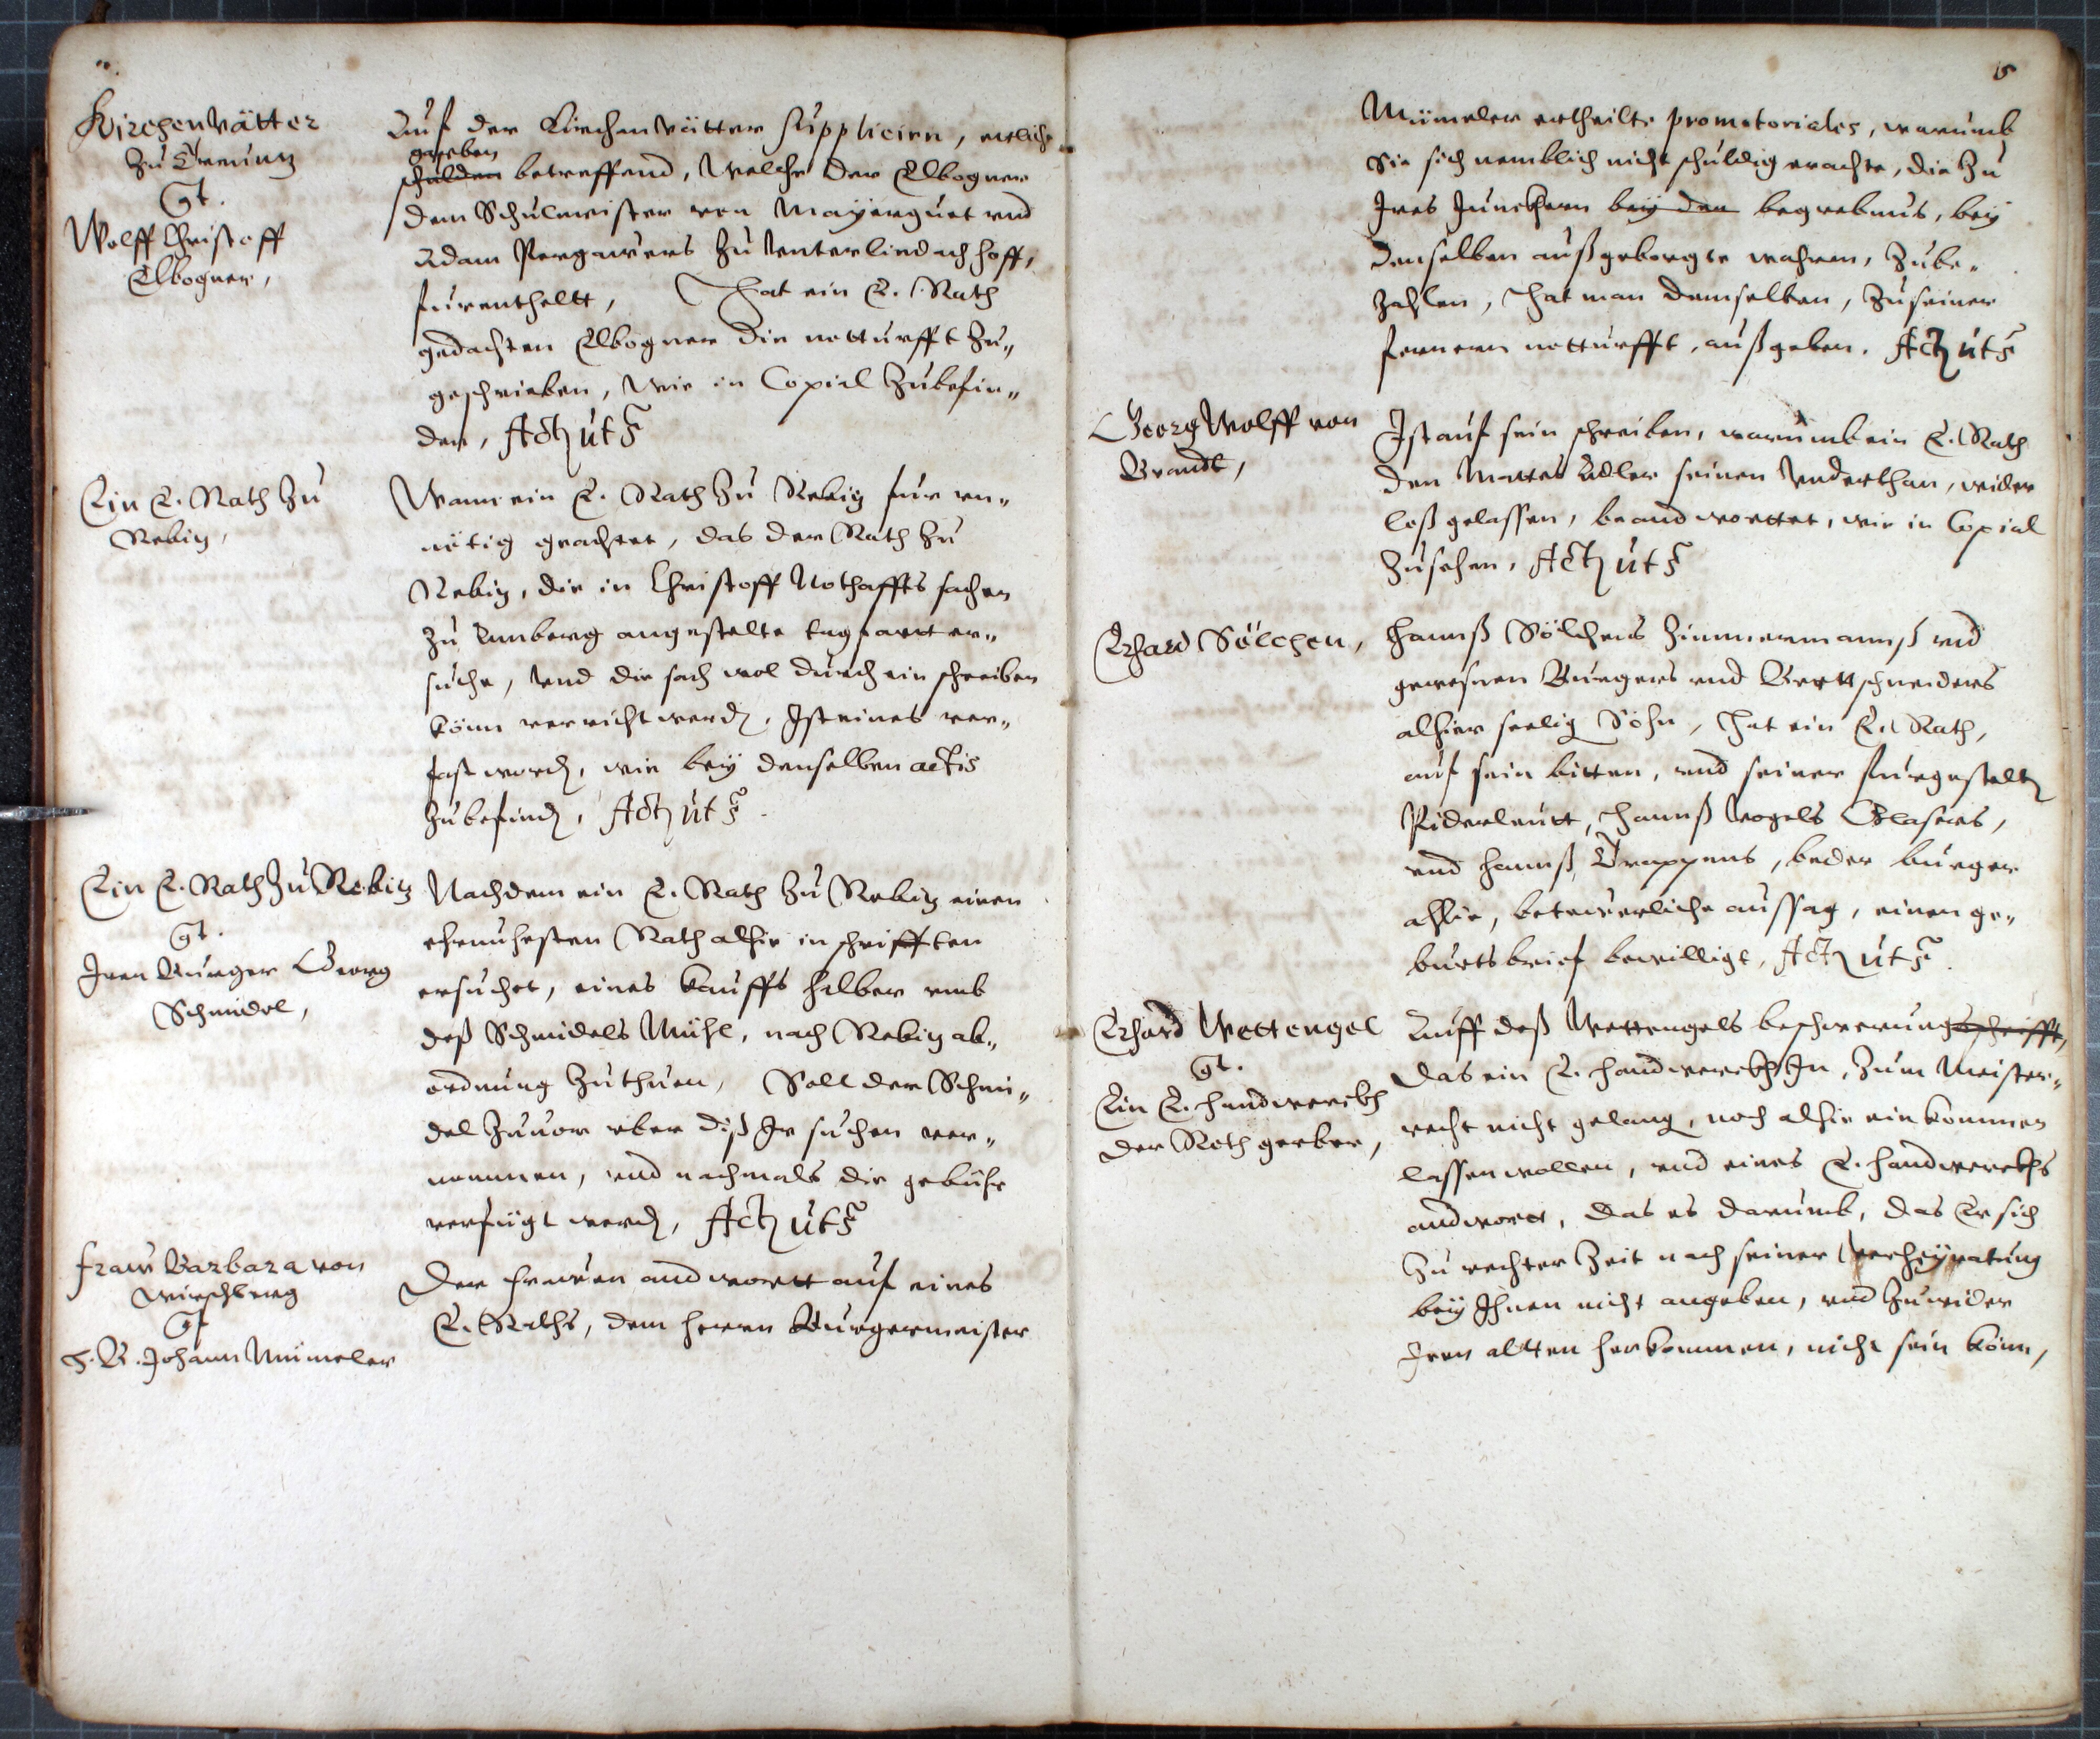 Kirchenvätter
zu
Ct.
Wolff Christoff
Elbogner,
Auf der Kirchenvätter suppliciren, etliche
gaben
schulden betreffend, welche der Elbogner
dem Schulmeister von Mayerguet vnd
Adam Pergawers zu Vnterlindachhoff,
furentheltt, Hat ein E. Rath
gedachten Elbogner die notturfft zu„
geschrieben, wie in Copial zubefin„
den, Act ut s
Ein E. Rath zu
Rebiz,
Wann ein E. Rath zu Rebiz fur vn„
nötig geachtet, das der Rath zu
Rebiz, die in Christoff Nothaffts sachen
zu Amberg angestelte tagfartt er„
suche, vnd die sach wol durch ein schreiben
könn verricht werd, Ist eines ver„
fast word, wie bey denselben actis
zubefind, Act ut s
Ein E. Rath zu Rebiz
Ct.
Iren Burger Georg
Schmidel,
Nachdem ein E. Rath zu Rebiz einen
ehrnuhesten Rath alhie in schrifften
ersuchet, eines kauffs halber vmb
deß Schmidels Mühl, nach Rebiz ab„
ordnung zuthuen, Soll der Schmi„
del zuuor vber diß Ir suchen ver„
nommen, vnd nachmals die gebühr
verfügt werd, Act ut s
Fraw Barbara von
Wirschberg
Ct
H. B. Johann Mümeler
Der Frawen andwortt auf eines
E. Raths, dem herrn Burgermeister
5
Mümeler ertheilte promotoriales, warumb
Sie sich nemblich nicht schuldig erachte, die zu
Ires Junckhern bey den begrebnus, bey
denselben außgeborgte wahren, zube„
zahlen, Hat man demselben, zu seiner
fernern notturfft, außgeben. Act ut s
Georg Wolff von
Brandt,
Ist auf sein schreiben, warumb ein E. Rath
den Mattes Adler seinen Vnderthan, wider
loß gelassen, beandworttet, wie in Copial
zusehen, Act ut s
Erhard Sölchen,
Hannß Sölchens Zimmermannß vnd
gewesnen Burgers vnd Brettschneiders
alhier seelig Sohn, Hat ein E. Rath,
auf sein bitten, vnd seiner furgestelt
Piderleutt, Hannß Vogels Glasers,
vnd Hannß Trappens, beder burger
alhie, betewerliche aussag, einen ge„
burtsbrief bewilligt, Act ut s
Erhard Wettengel
Ct.
Ein E. handwerckh
der Rothgerber,
Auff deß Wettengels beschwerungsschrifft,
das ein E. handwerckh In, zum Meister„
recht nicht gelang, noch alhie einkommen
lassen wollen, vnd eines E. handwerckhs
andwortt, das es darumb, das Er sich
zu rechter Zeit nach seiner Verheyratung
bey Ihnen nicht angeben, vnd zuwider
Iren altten herkommen, nicht sein könn,